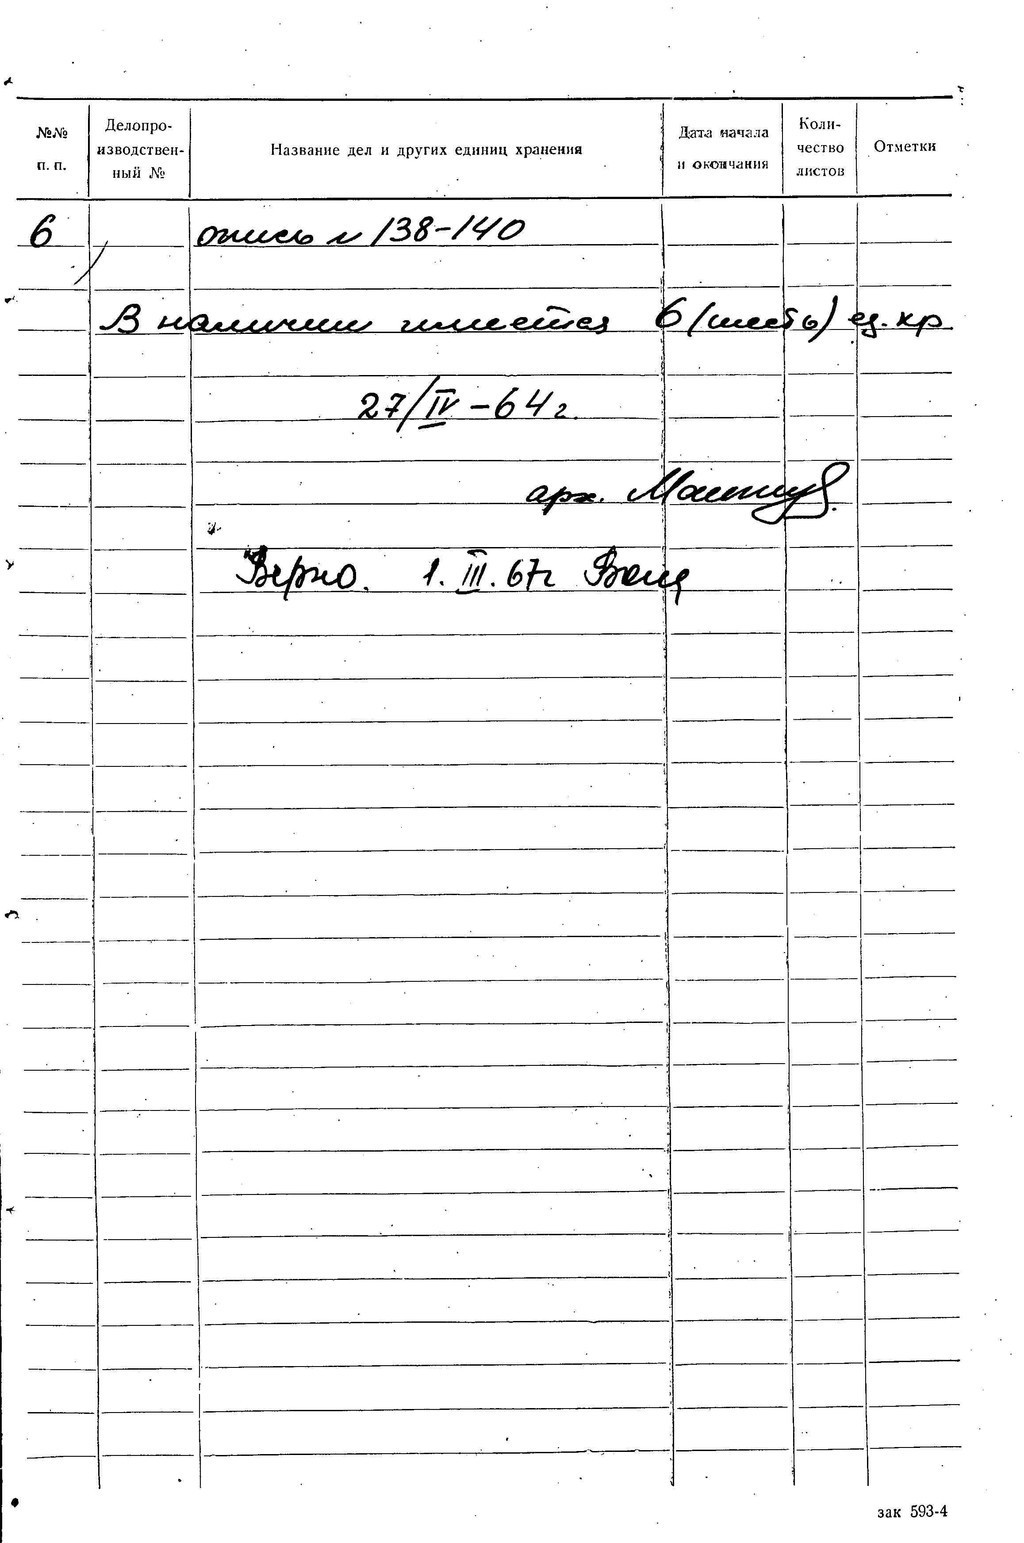 №№ п. п.
Делопро-
изводствен-
ный №
Название дел и других единиц хранения
Дата начала
и окончания
Коли-
чество
листов
Отметки
6 опись № 138-140
В наличии имеется 6 (шесть) ед. хр.
27/IV-64 г.
арх.
Верно. 1. III. 67г
зак 593-4